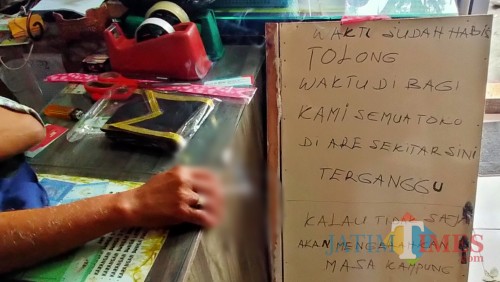 WAKTU SUDAH HABIS
TOLONG
WAKTU DI BAGI
KAMI SEMUA TOKO
DI ARE SEKITAR SINI
TERGANGGU
KALAU TIDAK SAJA
AKAN MENGALAHKAN
MASA KAMPUNG
JATIM TIMES
.com